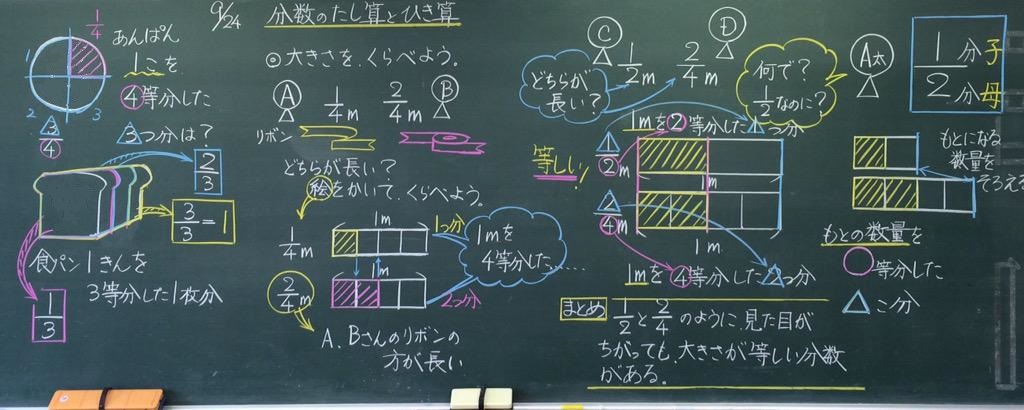 9/24
分数のたし算とひき算
1/4
あんぱん
1こを
④等分した
1
2
3
3/4
3つ分は?
2/3
3/3=1
食パン1きんを
3等分した1枚分
1/3
◎大きさを、くらべよう。
A
1/4m
2/4m
B
リボン
どちらが長い?
絵をかいて、くらべよう。
1m
1つ分
1/4m
1m
2/4m
2つ分
1mを
4等分した……
A、Bさんのリボンの
方が長い
C
1/2m
2/4m
D
どちらが
長い?
何で?
1/2なのに?
1mを②等分した1つ分
等しい!
1/2m
1m
2/4m
1m
1mを④等分した2つ分
まとめ
1/2と2/4のように、見た目が
ちがっても、大きさが等しい分数
がある。
A太
1/2
分子
分母
もとになる
数量を
そろえる
もとの数量を
○等分した
△こ分